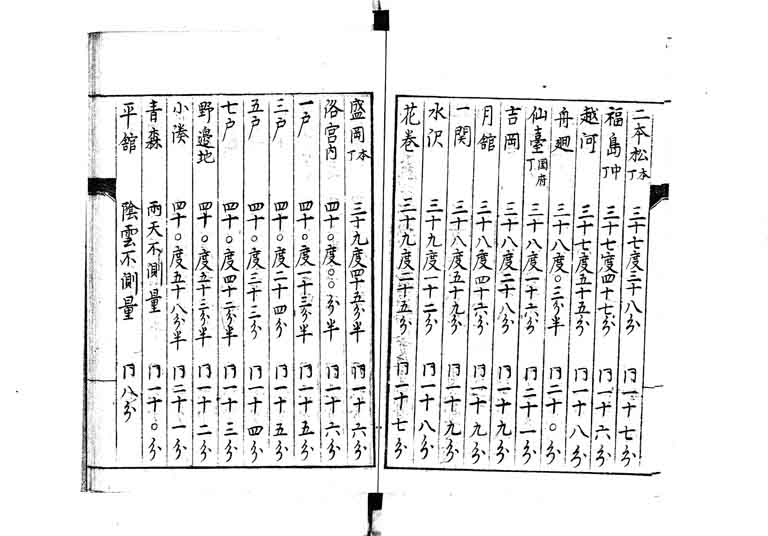 二本松本丁 三十七度三十八分 冂一十七分
福島中丁 三十七度四十七分 冂一十六分
越河 三十七度五十五分 冂一十八分
舟廻 三十八度〇三分半 冂二十〇分
仙臺国府丁 三十八度一十六分 冂二十一分
吉岡 三十八度二十八分 冂一十九分
月舘 三十八度四十六分 冂一十九分
一関 三十八度五十九分 冂一十九分
水沢 三十九度一十二分 冂一十八分
花巻 三十九度二十五分 冂一十七分
盛岡本丁 三十九度四十五分半 冂一十六分
洛宮内 四十〇度〇〇分半 冂一十六分
一戸 四十〇度一十三分半 冂一十五分
三戸 四十〇度二十四分 冂一十五分
五戸 四十〇度三十二分 冂一十四分
七戸 四十〇度四十二分半 冂一十三分
野邊地 四十〇度五十三分半 冂一十二分
小湊 四十〇度五十八分半 冂二十一分
青森 雨天不測量 冂一十〇分
平舘 陰雲不測量 冂八分